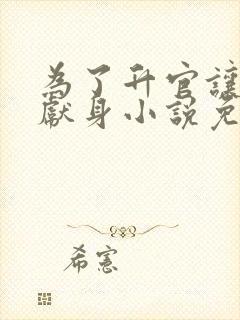 為了升官讓
獻身小說免
希憲